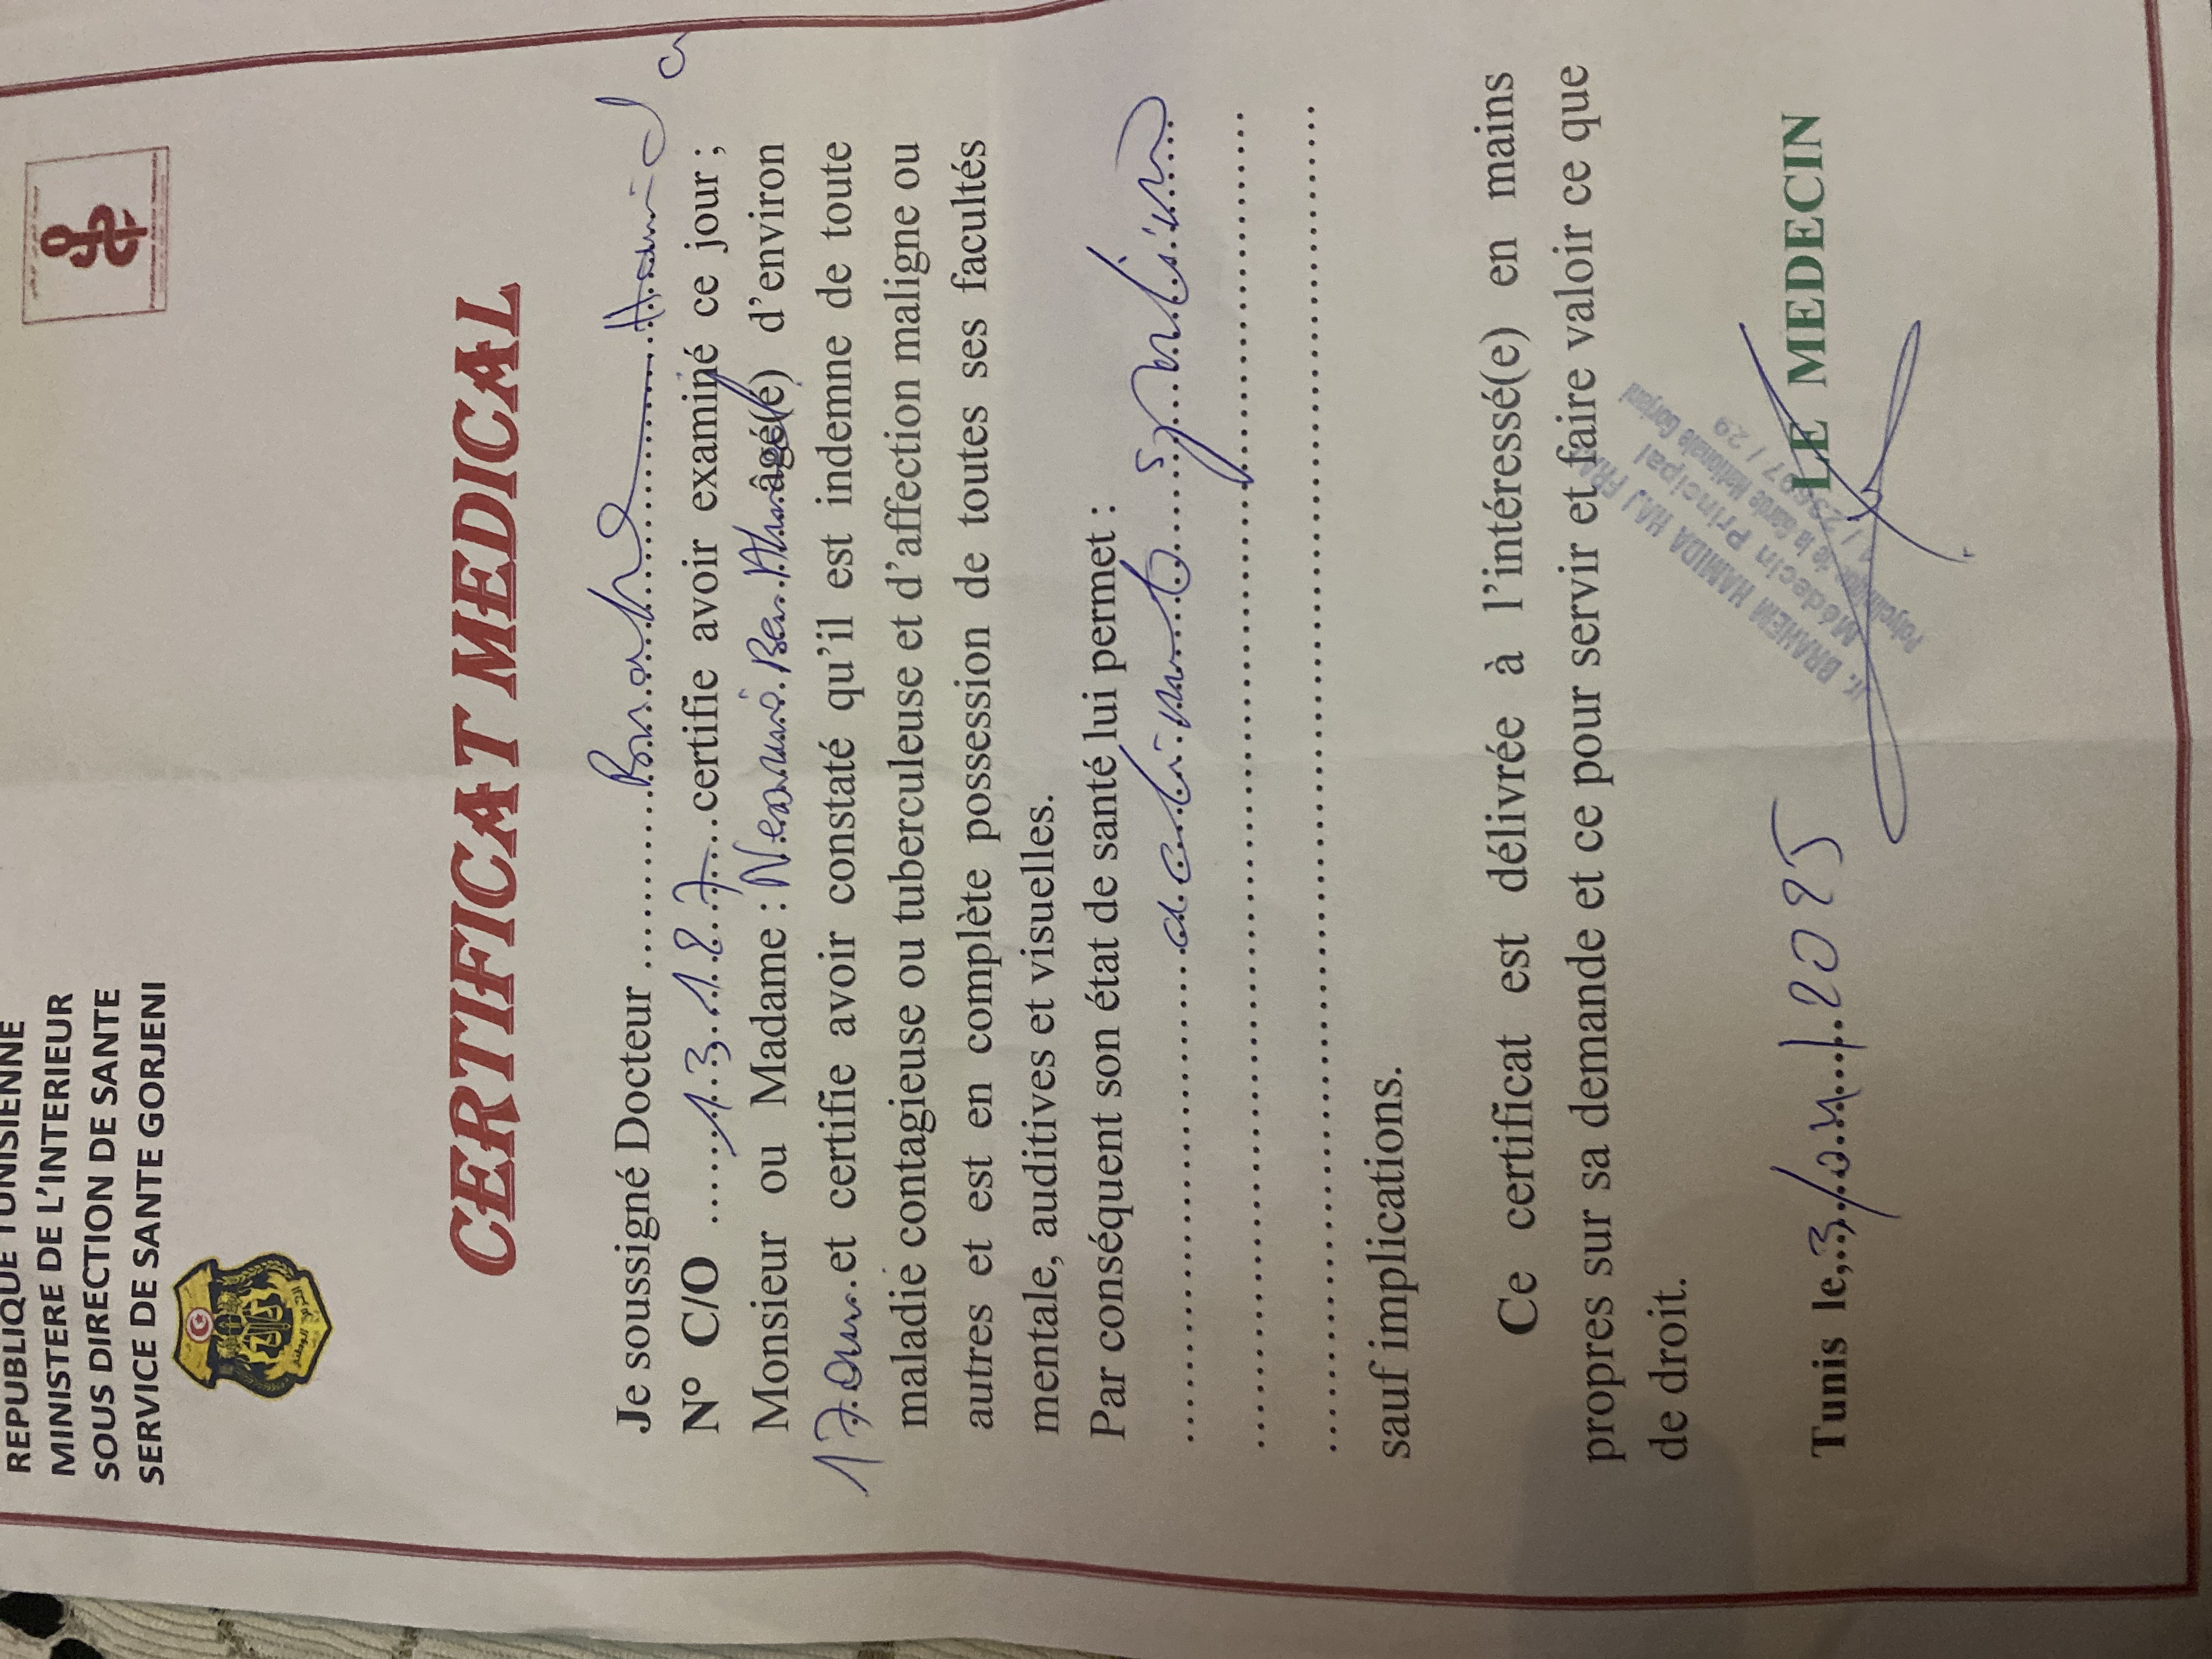 REPUBLIQUE TUNISIENNE
MINISTERE DE L'INTERIEUR
SOUS DIRECTION DE SANTE
SERVICE DE SANTE GORJENI
CERTIFICAT MEDICAL
Je soussigné Docteur ..........
N° C/O .......13187....certifie avoir examiné ce jour ;
Monsieur ou Madame : Ben âgé(é) d'environ
17 ans et certifie avoir constaté qu'il est indemne de toute
maladie contagieuse ou tuberculeuse et d'affection maligne ou
autres et est en complète possession de toutes ses facultés
mentale, auditives et visuelles.
Par conséquent son état de santé lui permet :
sauf implications.
Ce certificat est délivrée à l'intéressé(e) en mains
propres sur sa demande et ce pour servir et faire valoir ce que
de droit.
Tunis le, 3 2025
LE MEDECIN
BRAHEM HAMIDA HAJ
Médecin Principal
de la Garde Nationale Gorjani